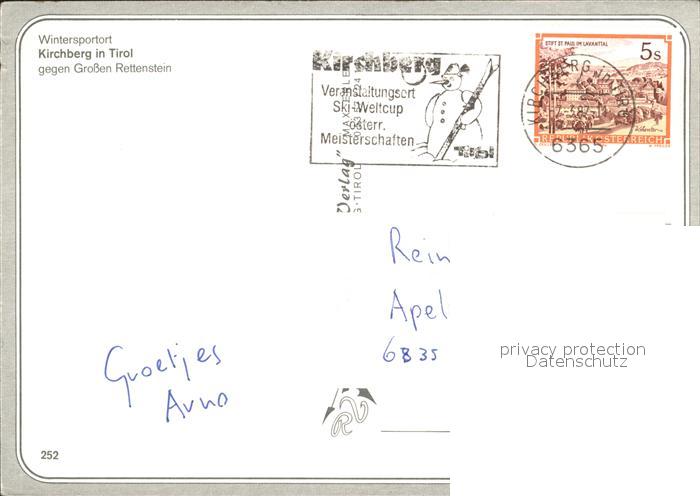 Wintersportort
Kirchberg in Tirol
gegen Großen Rettenstein
Kirchberg
Veranstaltungsort
Ski-Weltcup
österr.
Meisterschaften
Tirol
STIFT ST. PAUL IM LAVANTTAL
5s
REPUBLIK ÖSTERREICH
6365
Verlag"
G-TIROL
Rein
Apel
6835
privacy protection
Datenschutz
Groetjes
Arno
252